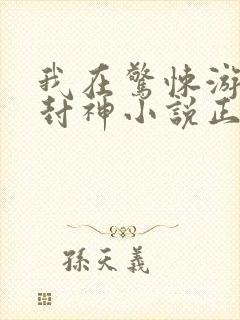 我在驚悚游
封神小説正
孫天義